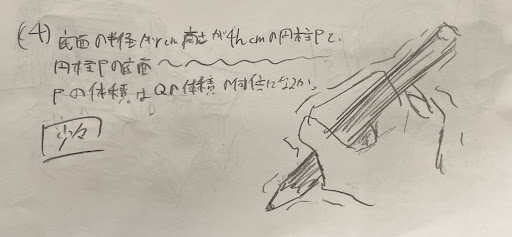 (4) 底面の半径がrcm 高さが4hcmの円柱Pと、
円柱Pの底面
Pの体積はQの体積の何倍になるか。